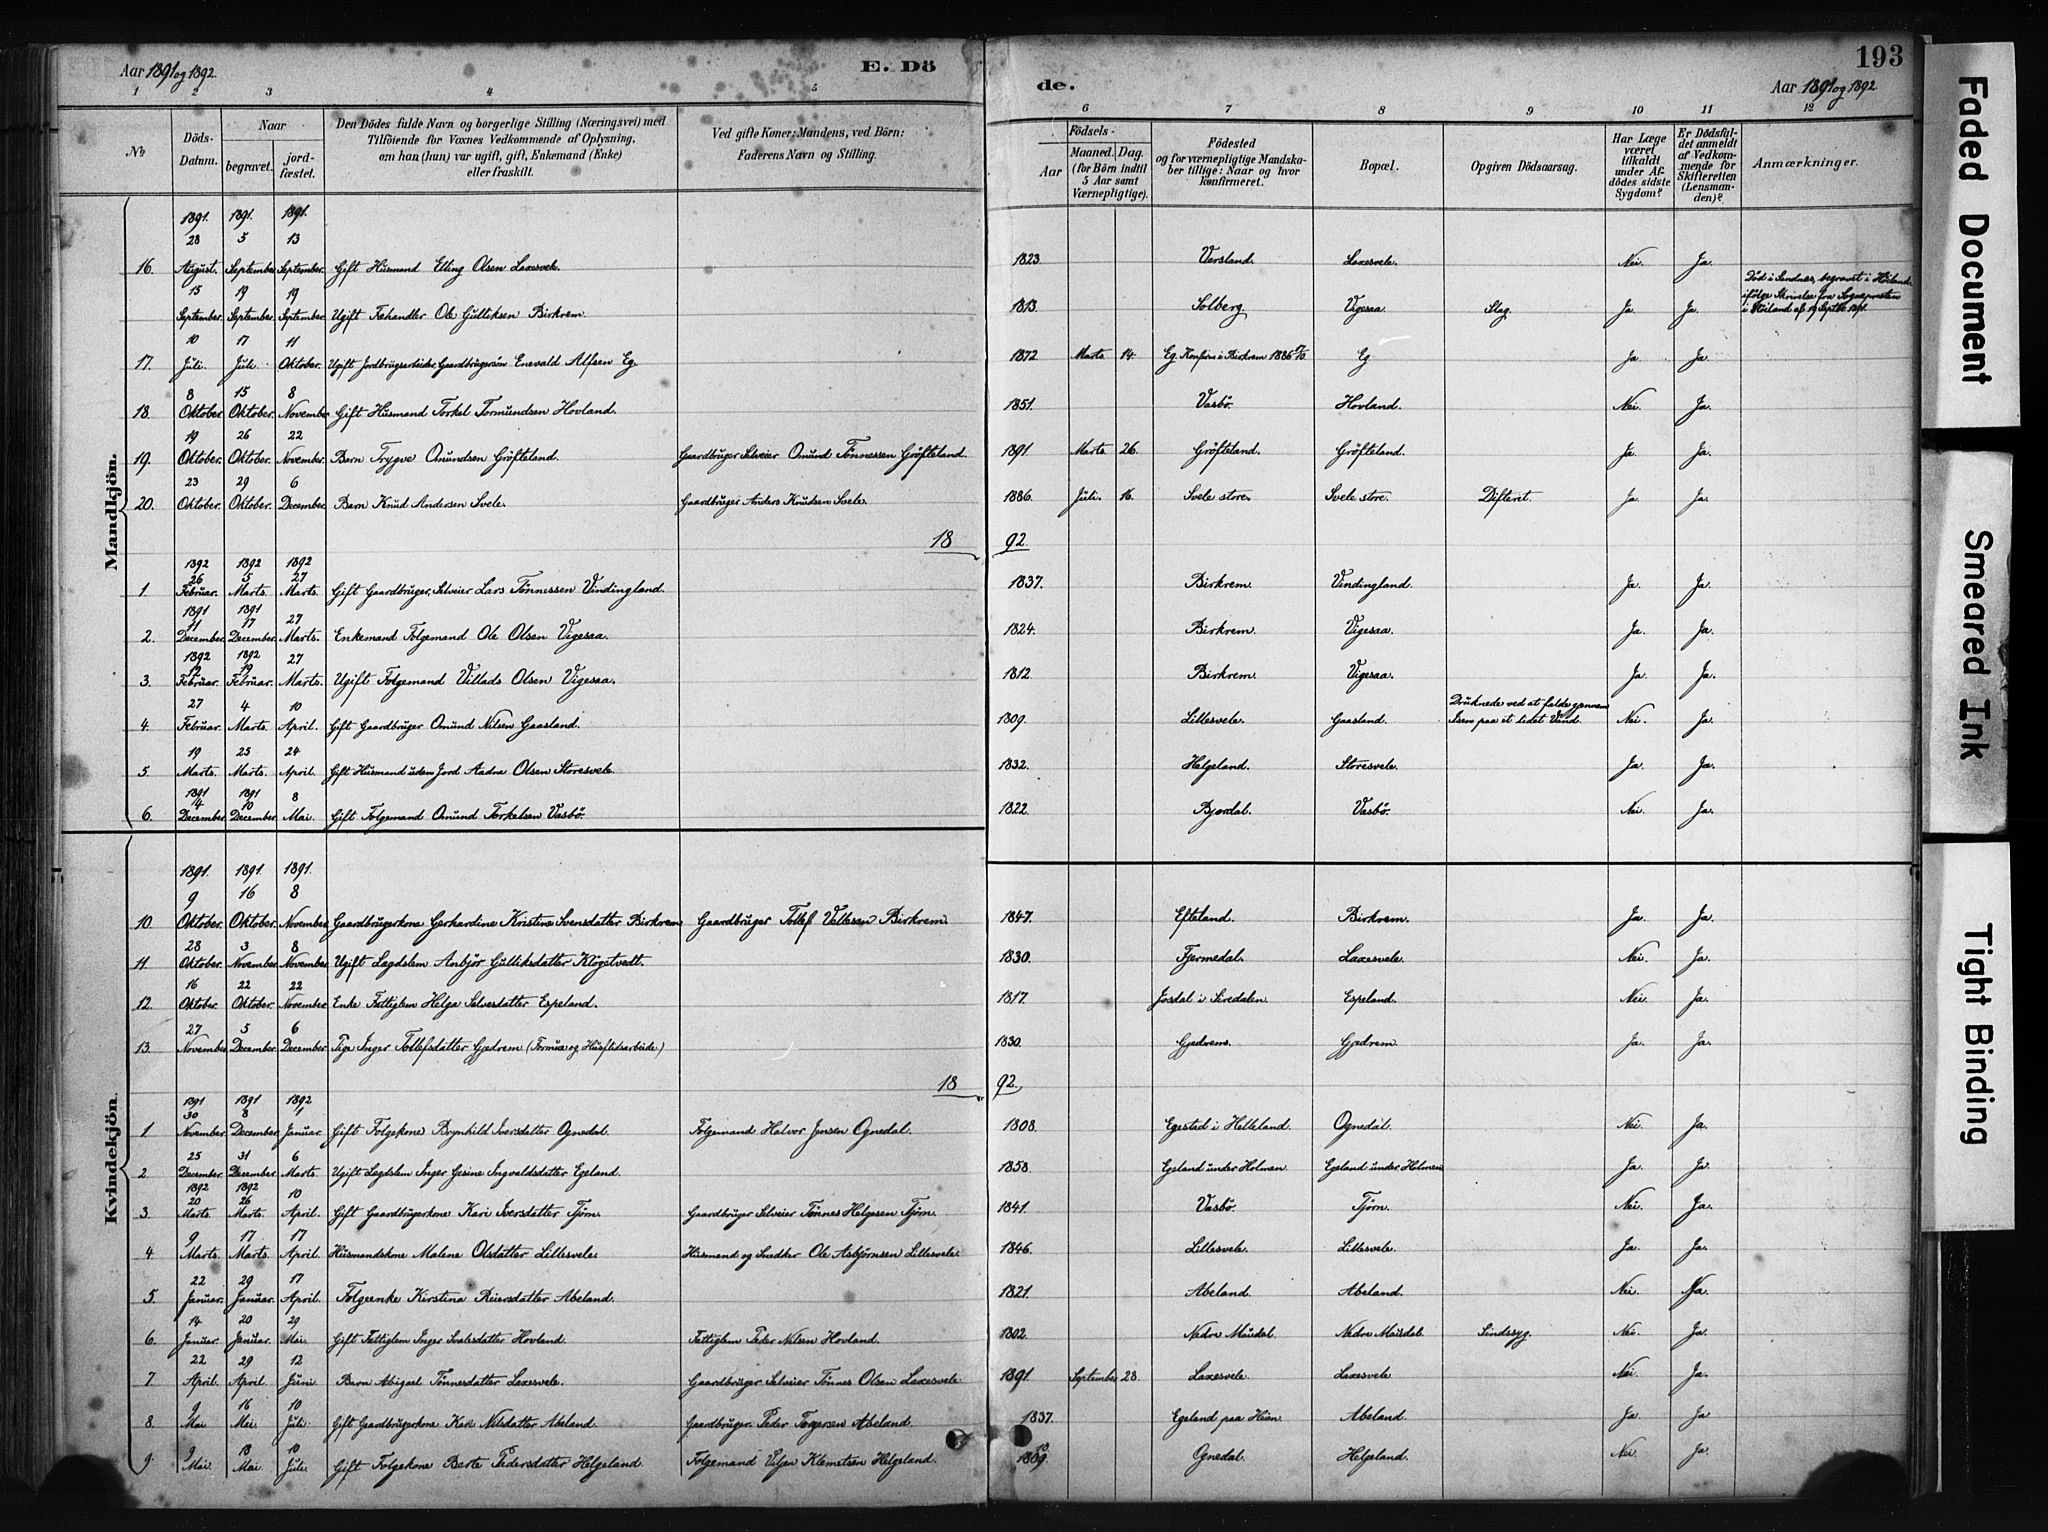 Aar 1891 og 1892. E. Dö de. Aar 1891 og 1892 193
1 2 3 4 5 6 7 8 9 10 11 12
No Döds-Datum. Naar begravet. jord-fæstet. Den Dödes fulde Navn og borgerlige Stilling (Næringsvei) med Tilföiende for Voxnes Vedkommende af Oplysning, om han (hun) var ugift, gift, Enkemand (Enke) eller fraskilt. Ved gifte Koner: Mandens, ved Börn: Faderens Navn og Stilling. Födsels- Aar Maaned. Dag. (for Börn indtil 5 Aar samt Værnepligtige). Födested og for værnepligtige Mandska-ber tillige: Naar og hvor konfirmeret. Bopæl. Opgiven Dödsaarsag. Har Læge været tilkaldt under Af-dödes sidste Sygdom? Er Dödsfal-det anmeldt af Vedkom-mende for Skifteretten (Lensman-den)? Anmærkninger.
Mandkjön.
1891. 1891. 1891.
28 5 13
16. August. September. September. Gift Husmand Elling Olsen Laxesvele. 1823. Versland. Laxesvele. Nei. Ja.
15 19 19
September. September. September. Ugift Fæhandler Ole Gulliksen Birkrem. 1813. Solberg. Vigesaa. Slag. Ja. Ja. Død i Sandnes, begravet i Höiland ifølge Skrivelse fra Sognepresten i Höiland af 19 Septbr. 1891.
10 17 11
17. Juli. Juli. Oktober. Ugift Jordbrugsarbeider, Gaardbrugersön Enevald Alfsen Eg. 1872 Marts. 14. Eg. Konfirm. i Birkrem 1886 Eg. Ja. Ja.
8 15 8
18. Oktober. Oktober. November. Gift Husmand Torkel Tormundsen Hovland. 1851. Vasbö. Hovland. Nei. Ja.
19 26 22
19. Oktober. Oktober. November. Barn Trygve Omundsen Gröfteland. Gaardbruger Selveier Omund Tönnessen Gröfteland. 1891. Marts. 26. Gröfteland. Gröfteland. Ja. Ja.
23 29 6
20. Oktober. Oktober. December. Barn Knud Andersen Svele. Gaardbruger Anders Knudsen Svele. 1886. Juli. 16. Svele store. Svele store. Difteret. Ja. Ja.
18 92.
1892 1892 1892
26 5 27
1. Februar. Marts. Marts. Gift Gaardbruger, Selveier Lars Tönnessen Vindingland. 1837. Birkrem. Vindingland. Ja. Ja.
1891 1891
11 17 27
2. December. December. Marts. Enkemand Folgemand Ole Olsen Vigesaa. 1824. Birkrem. Vigesaa. Ja. Ja.
1892 1892
12 19 27
3. Februar. Februar. Marts. Ugift Folgemand Villads Olsen Vigesaa. 1812. Birkrem. Vigesaa. Ja. Ja.
27 4 10
4. Februar. Marts. April. Gift Gaardbruger Omund Nilsen Gaasland. 1809. Lillesvele. Gaasland. Druknede ved at falde gjennem Isen paa et lidet Vand. Nei. Ja.
19 25 24
5. Marts. Marts. April. Gift Husmand uden Jord Aadne Olsen Storesvele. 1832. Helgeland. Storesvele. Ja. Ja.
1891 1891
4 10 8
6. December. December. Mai. Gift Folgemand Omund Torkelsen Vasbö. 1822. Bjordal. Vasbö. Nei. Ja.
Kvindekjön.
1891. 1891. 1891.
9 16 8
10. Oktober. Oktober. November. Gaardbrugerkone Gerhardine Kristine Svensdatter Birkrem Gaardbruger Tollef Vellesen Birkrem. 1847. Efteland. Birkrem. Ja. Ja.
28 3 8
11. Oktober. November. November. Ugift Lægdslem Anbjör Gulliksdatter Klögetvedt. 1830. Fjermedal. Laxesvele. Nei. Ja.
16 22 22
12. Oktober. Oktober. November. Enke Fattiglem Helga Selvesdatter Espeland. 1817. Josdal i Siredalen. Espeland. Nei. Ja.
27 5 6
13. November. December. December. Pige Inger Tollefsdatter Gjedrem (Formue og Husflidsarbeide) 1830. Gjedrem. Gjedrem. Ja. Ja.
18 92.
1891 1891 1892
30 8 1
1 November. December. Januar. Gift Folgekone Brynhild Iversdatter Ognedal. Folgemand Halvor Jensen Ognedal. 1808. Egestad i Helleland. Ognedal. Nei. Ja.
25 31 6
2 December. December. Marts. Ugift Lægdslem Inger Gesine Ingvaldsdatter Egeland. 1858. Egeland under Holmen. Egeland under Holmen Ja. Ja.
1892 1892
20 26 10
3. Marts. Marts. April. Gift Gaardbrugerkone Kari Iversdatter Tjörn. Gaardbruger Selveier Tönnes Helgesen Tjörn. 1841. Vasbö. Tjörn. Nei. Ja.
9 17 17
4 Marts. Marts. April. Husmandskone Malene Olsdatter Lillesvele. Husmand og Snedker Ole Asbjörnsen Lillesvele. 1846. Lillesvele. Lillesvele. Ja. Ja.
22 29 17
5. Januar. Januar. April. Folgeenke Kirstina Reiersdatter Abeland. 1821. Abeland. Abeland. Nei. Ja.
14 20 29
6. Januar. Januar. Mai. Gift Fattiglem Inger Svalesdatter Hovland. Fattiglem Peder Nilsen Hovland. 1802. Nedre Maudal. Nedre Maudal. Sindssyg. Nei. Ja.
22 29 12
7 April. April. Juni. Barn Abigael Tönnesdatter Laxesvele. Gaardbruger Selveier Tönnes Olsen Laxesvele 1891. September 28. Laxesvele. Laxesvele Nei. Ja.
9 16 10
8. Mai Mai. Juli. Gift Gaardbrugerkone Kari Nilsdatter Abeland. Gaardbruger Peder Torgersen Abeland 1837. Egeland paa Heien. Abeland. Ja Ja
9 13 10
9. Mai. Mai. Juli. Gift Folgekone Berte Pedersdatter Helgeland. Folgemand Klemetsen Helgeland. 1809. 10 Ognedal. Helgeland. Nei. Ja.
Faded Document
Smeared Ink
Tight Binding